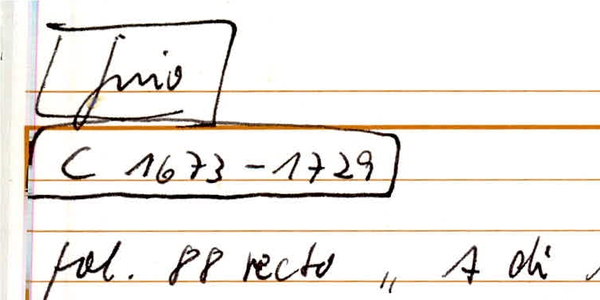 Jnio
C 1673-1729
fol. 88 recto „ A di